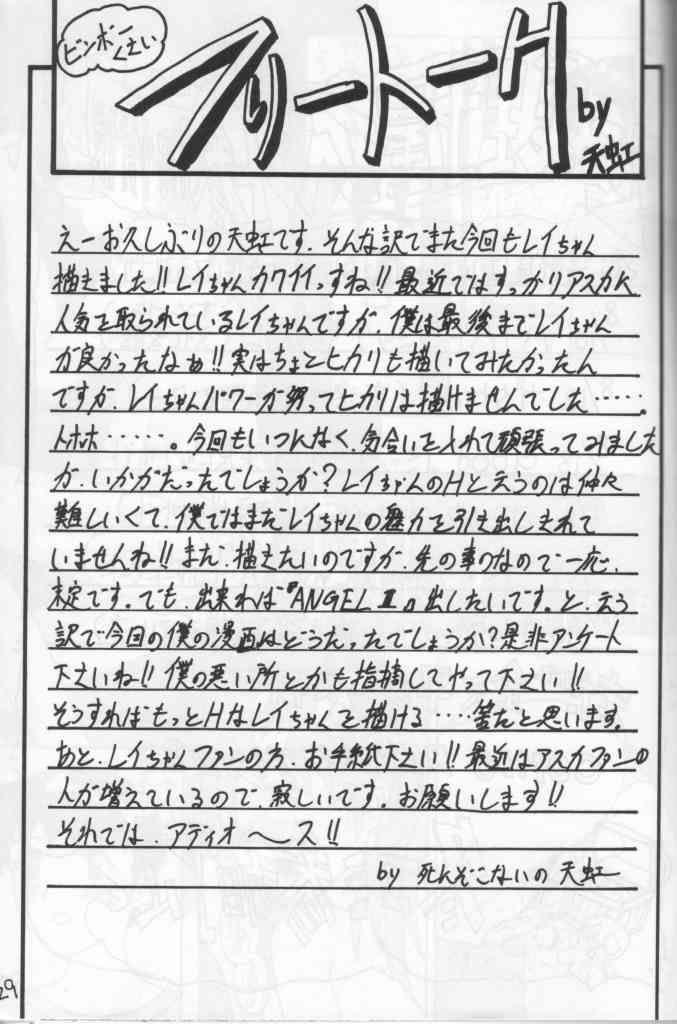 ビンボー
くさい
フリートーーク
by
天虹
えーお久しぶりの天虹です。そんな訳でまた今回もレイちゃん
描きました!!レイちゃんカワイイっすね!!最近ではすっかりアスカに
人気を取られているレイちゃんですが、僕は最後までレイちゃん
が良かったなぁ!!実はちょとヒカリも描いてみたかったん
ですが、レイちゃんパワーが努ってヒカリは描けませんでした……。
トホホ……。今回もいつになく、気合いを入れて頑張ってみました
が、いかがだったでしょうか?レイちゃんのHと云うのは仲々
難しいくて、僕ではまだレイちゃんの魅力を引き出しきれて
いませんね!!まだ、描きたいのですが、先の事なので一応、
未定です。でも、出来れば『ANGEL II』出したいです。と、云う
訳で今回の僕の漫画はどうだったでしょうか?是非アンケート
下さいね!!僕の悪い所とかも指摘してやって下さい!!
そうすればもっとHなレイちゃんを描ける……筈だと思います。
あと、レイちゃんファンの方、お手紙下さい!!最近はアスカファンの
人が増えているので、寂しいです。お願いします!!
それでは、アディオ〜ス!!
by 死んぞこないの 天虹
29